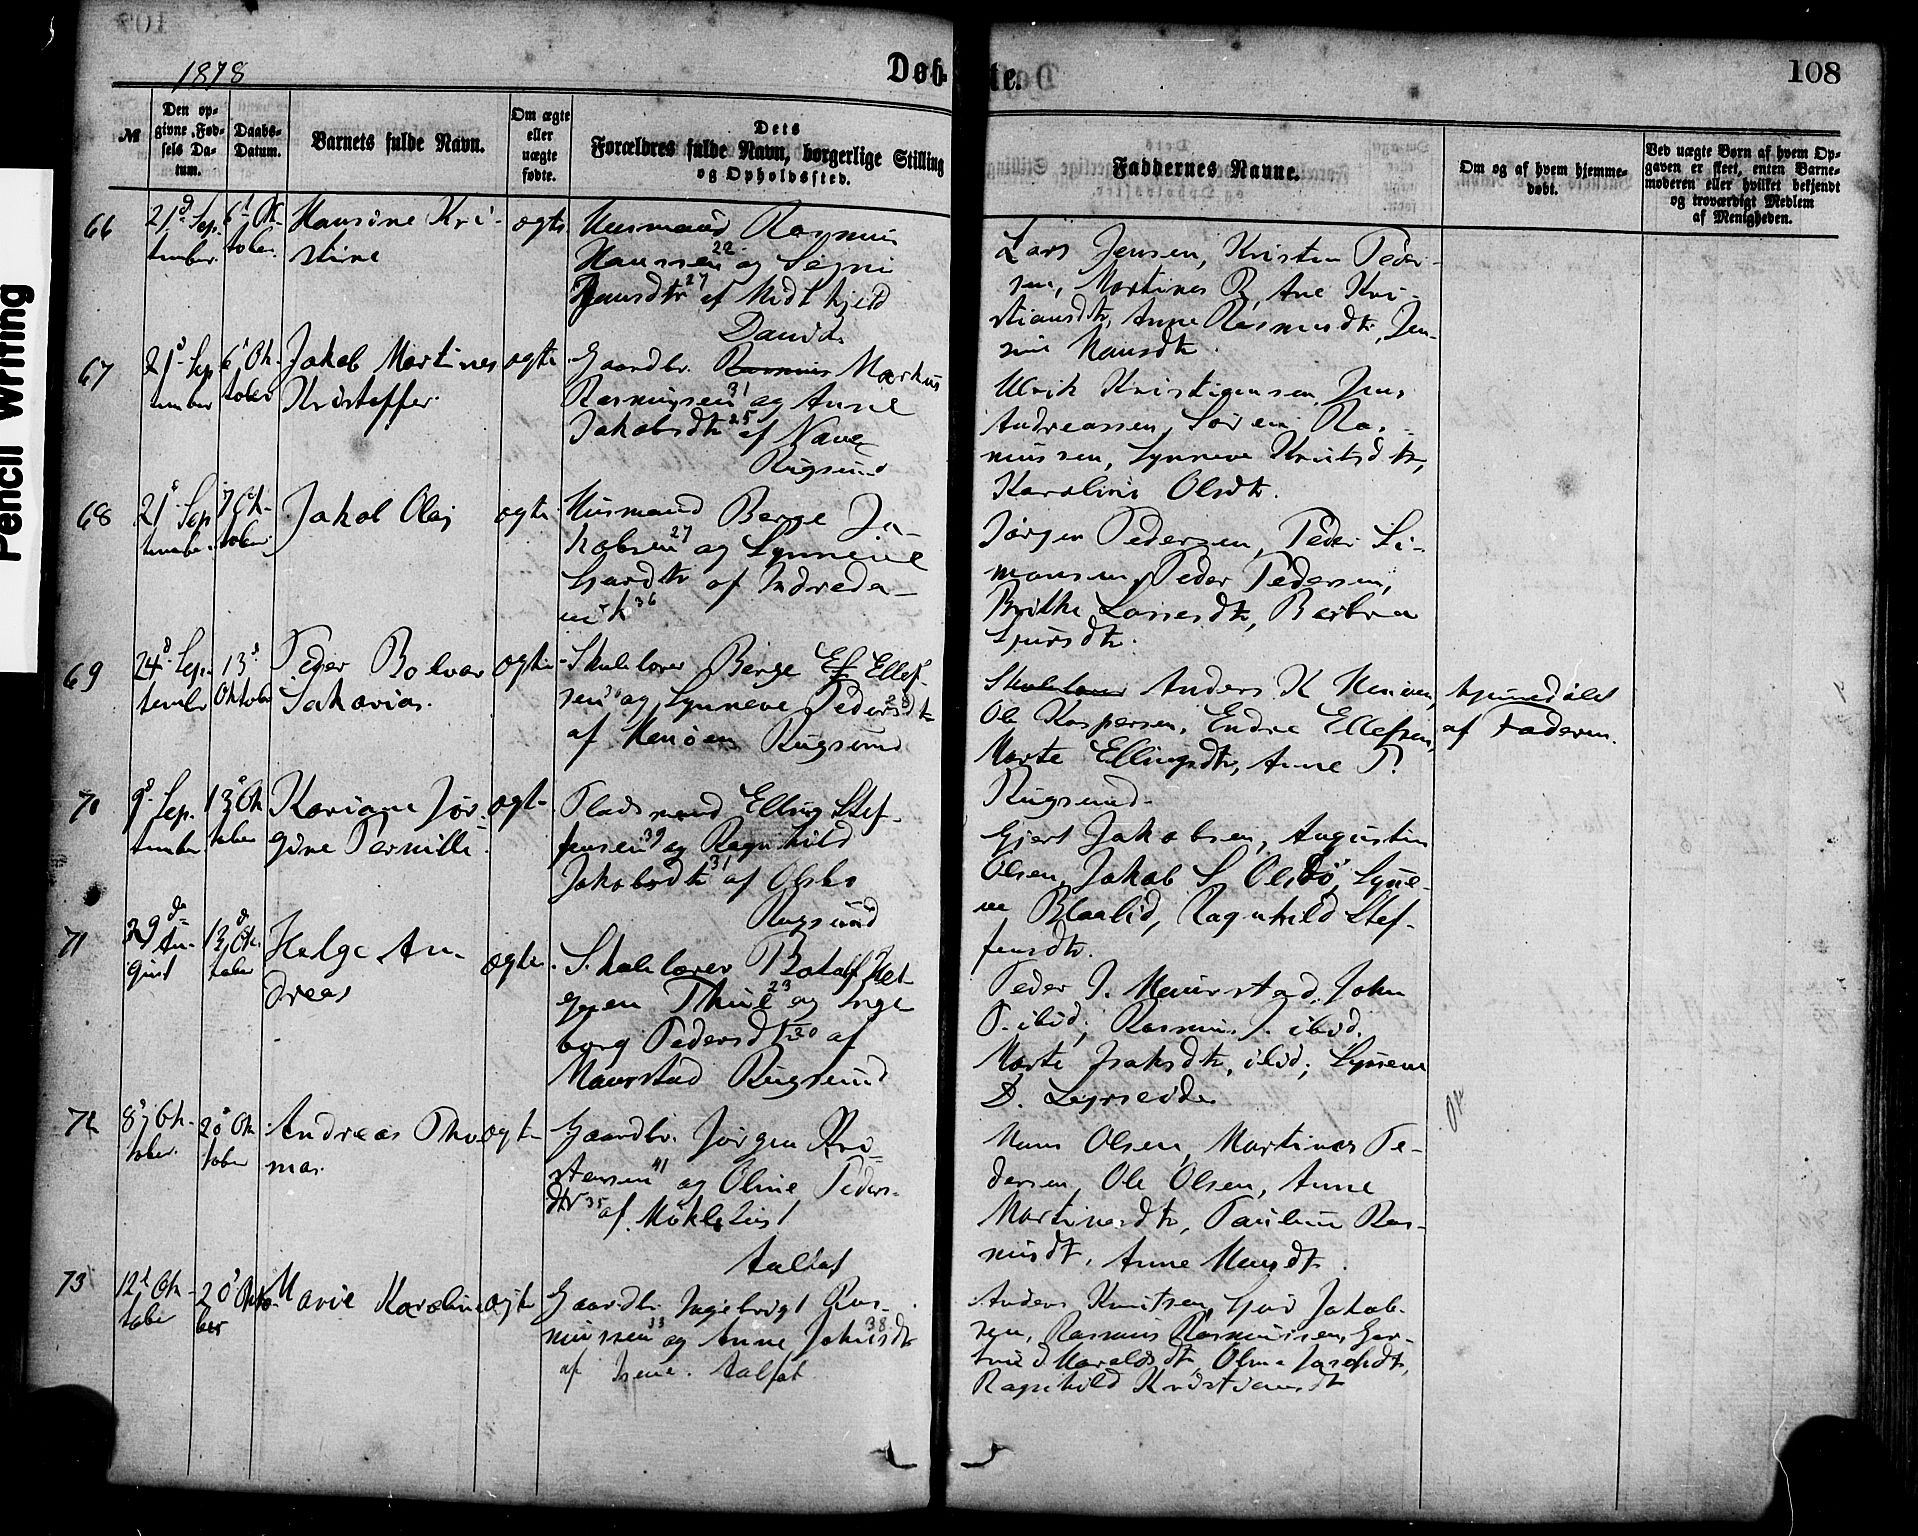 1878
Døb-
te.
108
№
Den op-
givne Fød-
sels Da-
tum.
Daabs-
Datum.
Barnets fulde Navn.
Om ægte
eller
uægte
fødte.
Dets
Forældres fulde Navn, borgerlige Stilling
og Opholdssted.
Faddernes Navne.
Om og af hvem hjemme-
døbt.
Ved uægte Børn af hvem Op-
gaven er skeet, enten Barne-
moderen eller hvilket bekjendt
og troværdigt Medlem
af Menigheden.
Pencil writing
66
21d Sep-
tember
6d Ok-
tober
Hansine Kri-
stine
ægte
Husmand Rasmus
Hanssen 22 og
Hansdtr 27 af Midthjeld
Davik
Lars Jensen, Kristen Peder-
sen, Martines R, Ane Kri-
stiansdtr, Anne Rasmusdtr, Jen-
sine Hansdtr.
67
21d Sep
tember
6d Ok-
tober
Jakob Martines
Kristoffer
ægte
Gaardbr. Rasmus Markus
Rasmussen 31 og Anne
Jakobsdtr 25 af Nave
Rugsund
Ulrik Kristiansen, Jens
Andreassen, Søren Ras-
mussen, Synneve Knutsdtr,
Karoline Olsdtr.
68
21d Sep
tember
7d Ok-
tober
Jakob Olai
ægte
Husmand Berge Ja-
kobsen 27 og Synneve
af Indreda-
vik 36
Jørgen Pedersen, Peder Si-
monsen, Peder Pedersen,
Brithe Lassesdtr, Barbra
Sjursdtr.
69
24d Sep-
tember
13d
Oktober
Peder
Sakarias.
ægte
Skolelærer Berge Ef Ellef-
sen og Synneve Pedersdtr 28
af Henøen Rugsund
Skolelærer Anders K Henøen,
Ole Kaspersen, Endre Ellefsen,
Marte Ellingsdtr, Anne P.
Rugsund.
hjemmedøbt
af Faderen.
70
9d Sep-
tember
13d Ok
tober
Kariane Jør-
gine Pernille
ægte
Pladsmand Elling Stef-
fensen 39 og Ragnhild
Jakobsdtr 31 af
Rugsund
Gjert Jakobsen, Augustin
Olsen, Jakob S. Synne-
ve Blaalid, Ragnhild Stef-
fensdtr.
71
29de Au-
gust
13d Ok
tober
Helge An-
dreas
ægte
Skolelærer Botolf Hel-
gesen Thue 23 og Inge
borg Pedersdtr 30 af
Maurstad Rugsund
Peder J. Maurstad, John
P. ibid; Rasmus J. ibid.
Marte Isaksdtr, ibid; Synneve
D.
72
8d Ok-
tober
20d Ok
tober
Andreas Tho-
mas
ægte
Gaardbr. Jørgen Kri-
stensen 41 og Oline Peders-
dtr 35 af Myklebust
Aalfot
Hans Olsen, Martines Pe-
dersen, Ole Olsen, Anne
Martinusdtr, Pauline Ras-
musdtr, Anne Hansdtr.
73
12d Ok-
tober
20d Okto-
ber
Marie Karoline
ægte
Gaardbr. Ingebrigt Ras-
mussen 33 og Anne 38
af Isene. Aalfot
Anders Knutsen, Jakob-
sen, Rasmus Rasmussen, Ger-
trud Haraldsdtr, Oline Josefsdtr,
Ragnhild Kristiansdtr